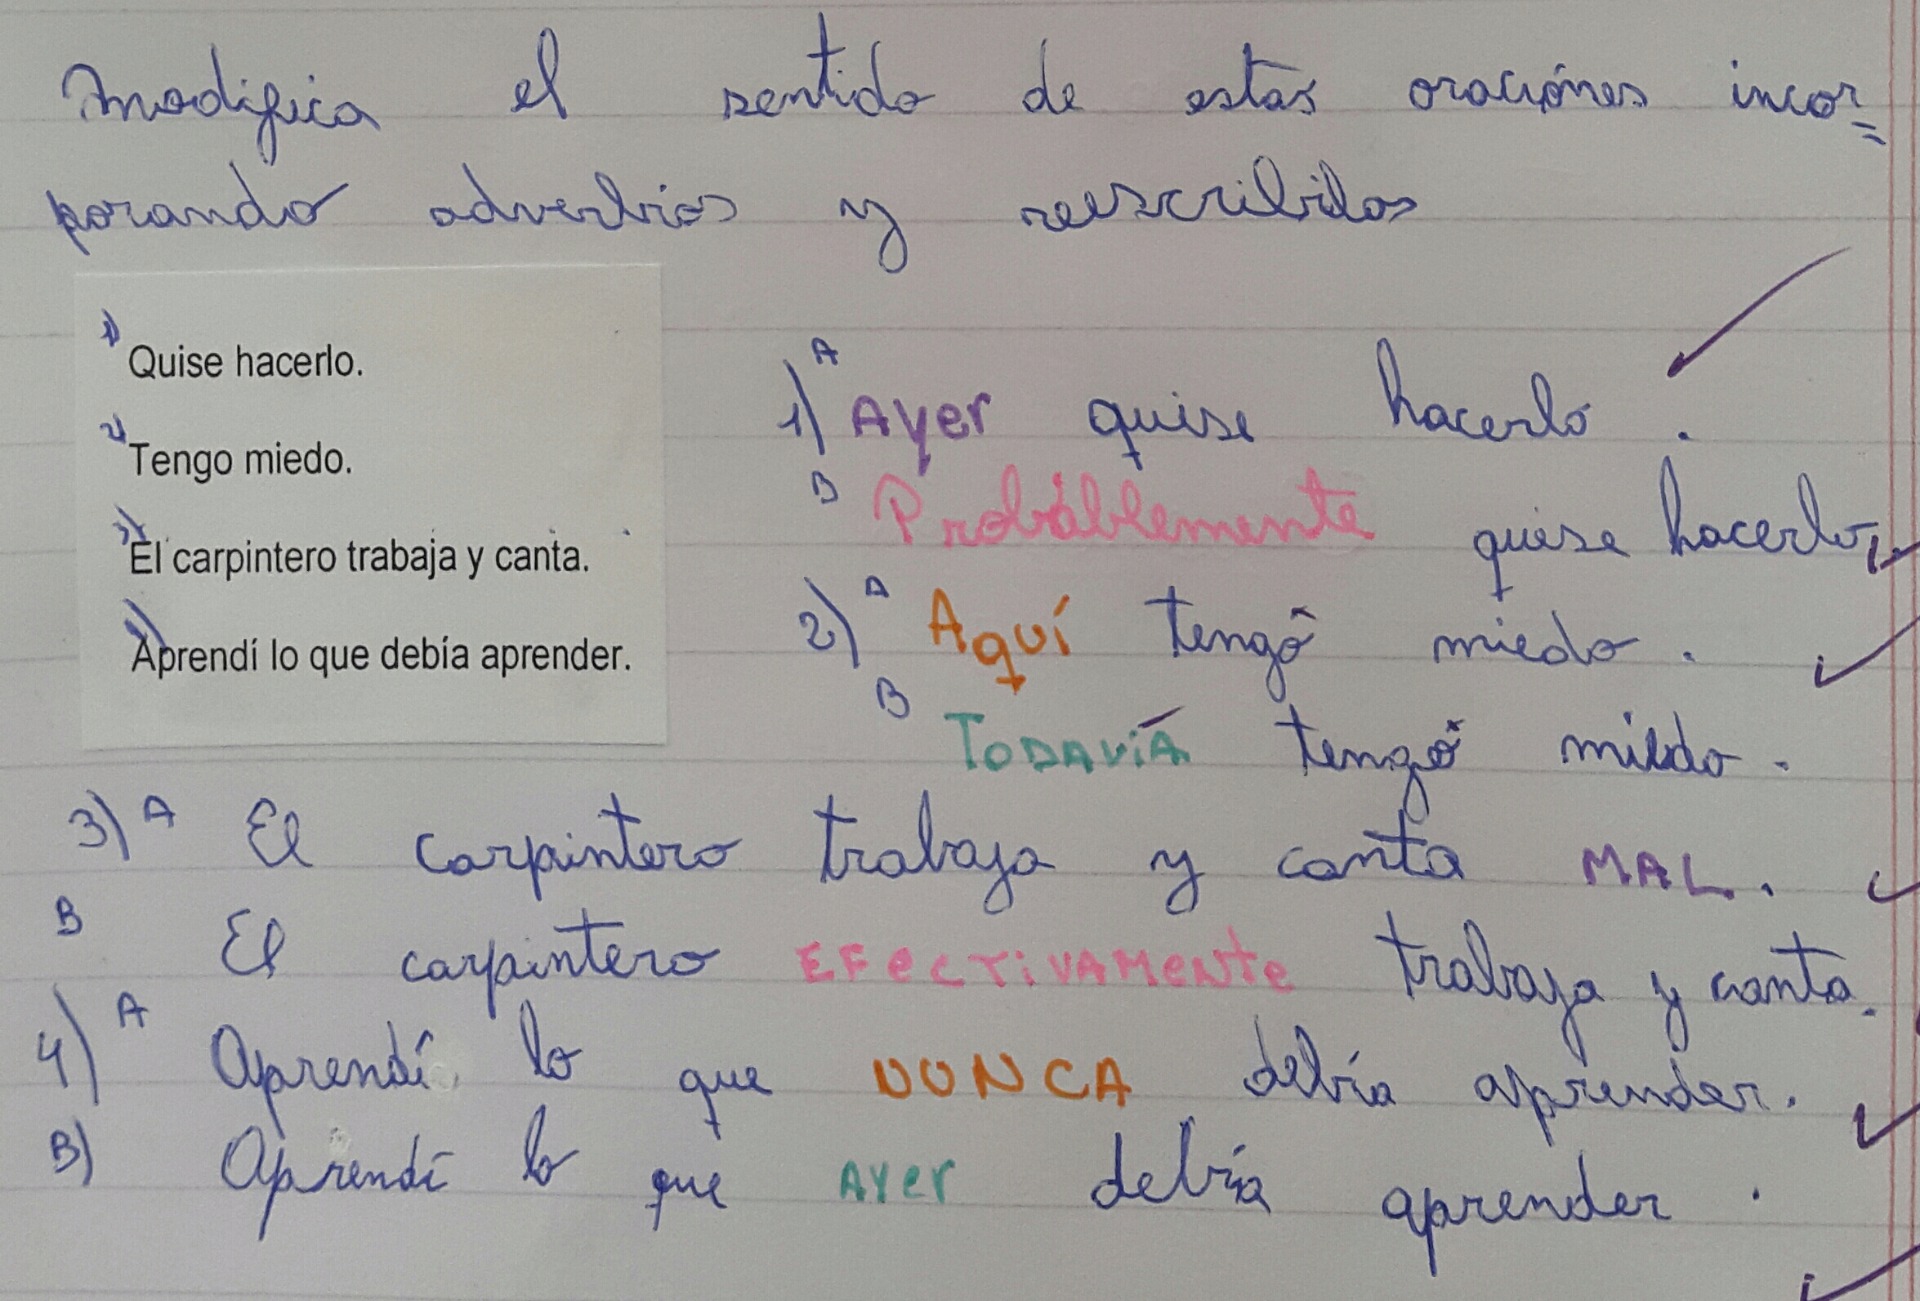 Modifica el sentido de estas oraciónes incor=
porando adverbios y reescribilos
1) Quise hacerlo.
2) Tengo miedo.
3) El carpintero trabaja y canta.
4) Aprendí lo que debía aprender.
1) A Ayer quise hacerlo.
B Probáblemente quise hacerlo.
2) A Aquí tengo miedo.
B TODAVÍA tengo miedo.
3) A El carpintero trabaja y canta MAL.
B El carpintero EFECTIVAMENTE trabaja y canta.
4) A Aprendí lo que NUNCA debía aprender.
B) Aprendí lo que AYER debía aprender.